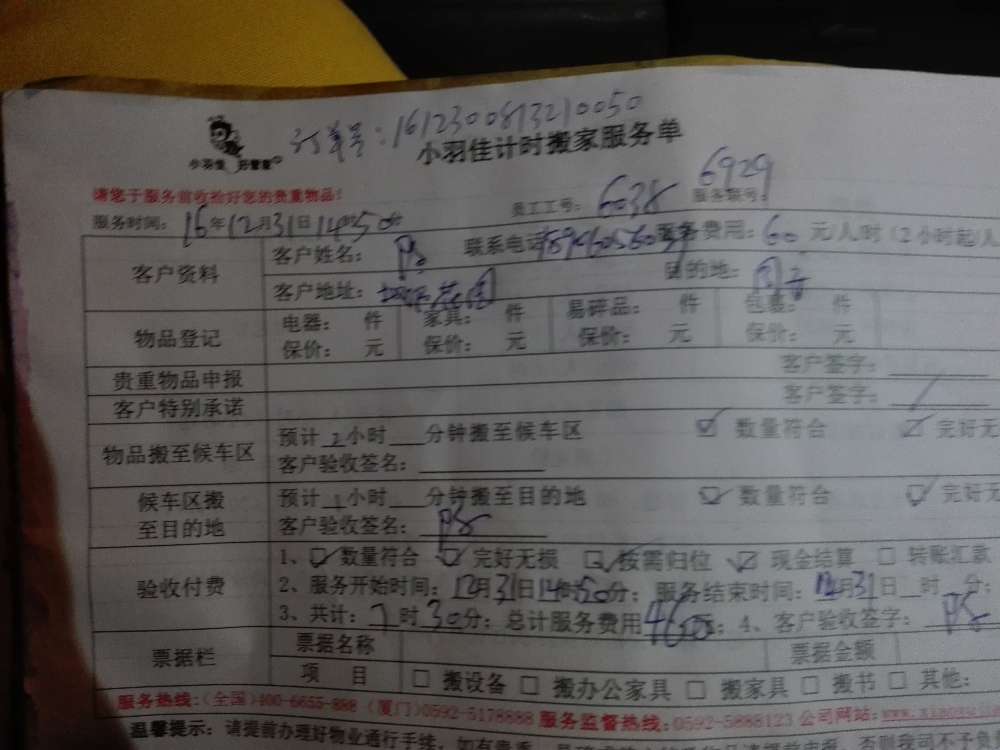 订单号：1612300813210050
小羽佳 好管家
小羽佳计时搬家服务单
请您于服务前收拾好您的贵重物品！
员工工号： 6038 服务联号： 6929
服务时间： 16年12月31日14时50分
客户资料
客户姓名： 联系电话 服务费用：60元/人/时（2小时起/人
客户地址： 花园 目的地：
物品登记
电器： 件 家具： 件 易碎品： 件 包装： 件
保价： 元 保价： 元 保价： 元 保价： 元
贵重物品申报 客户签字：
客户特别承诺 客户签字：
物品搬至候车区
预计2小时 分钟搬至候车区 数量符合 完好无
客户验收签名：
候车区搬至目的地
预计1小时 分钟搬至目的地 数量符合 完好无
客户验收签名：
验收付费
1、数量符合 完好无损 按需归位 现金结算 转账汇款
2、服务开始时间：12月31日14时50分；服务结束时间：12月31日 时 分；
3、共计：7时30分；总计服务费用 元；4、客户验收签字：
票据栏
票据名称 票据金额
项 目 搬设备 搬办公家具 搬家具 搬书 其他：
服务热线：（全国）400-6655-888（厦门）0592-5178888 服务监督热线：0592-5888123 公司网站：
温馨提示：请提前办理好物业通行手续，如有贵重